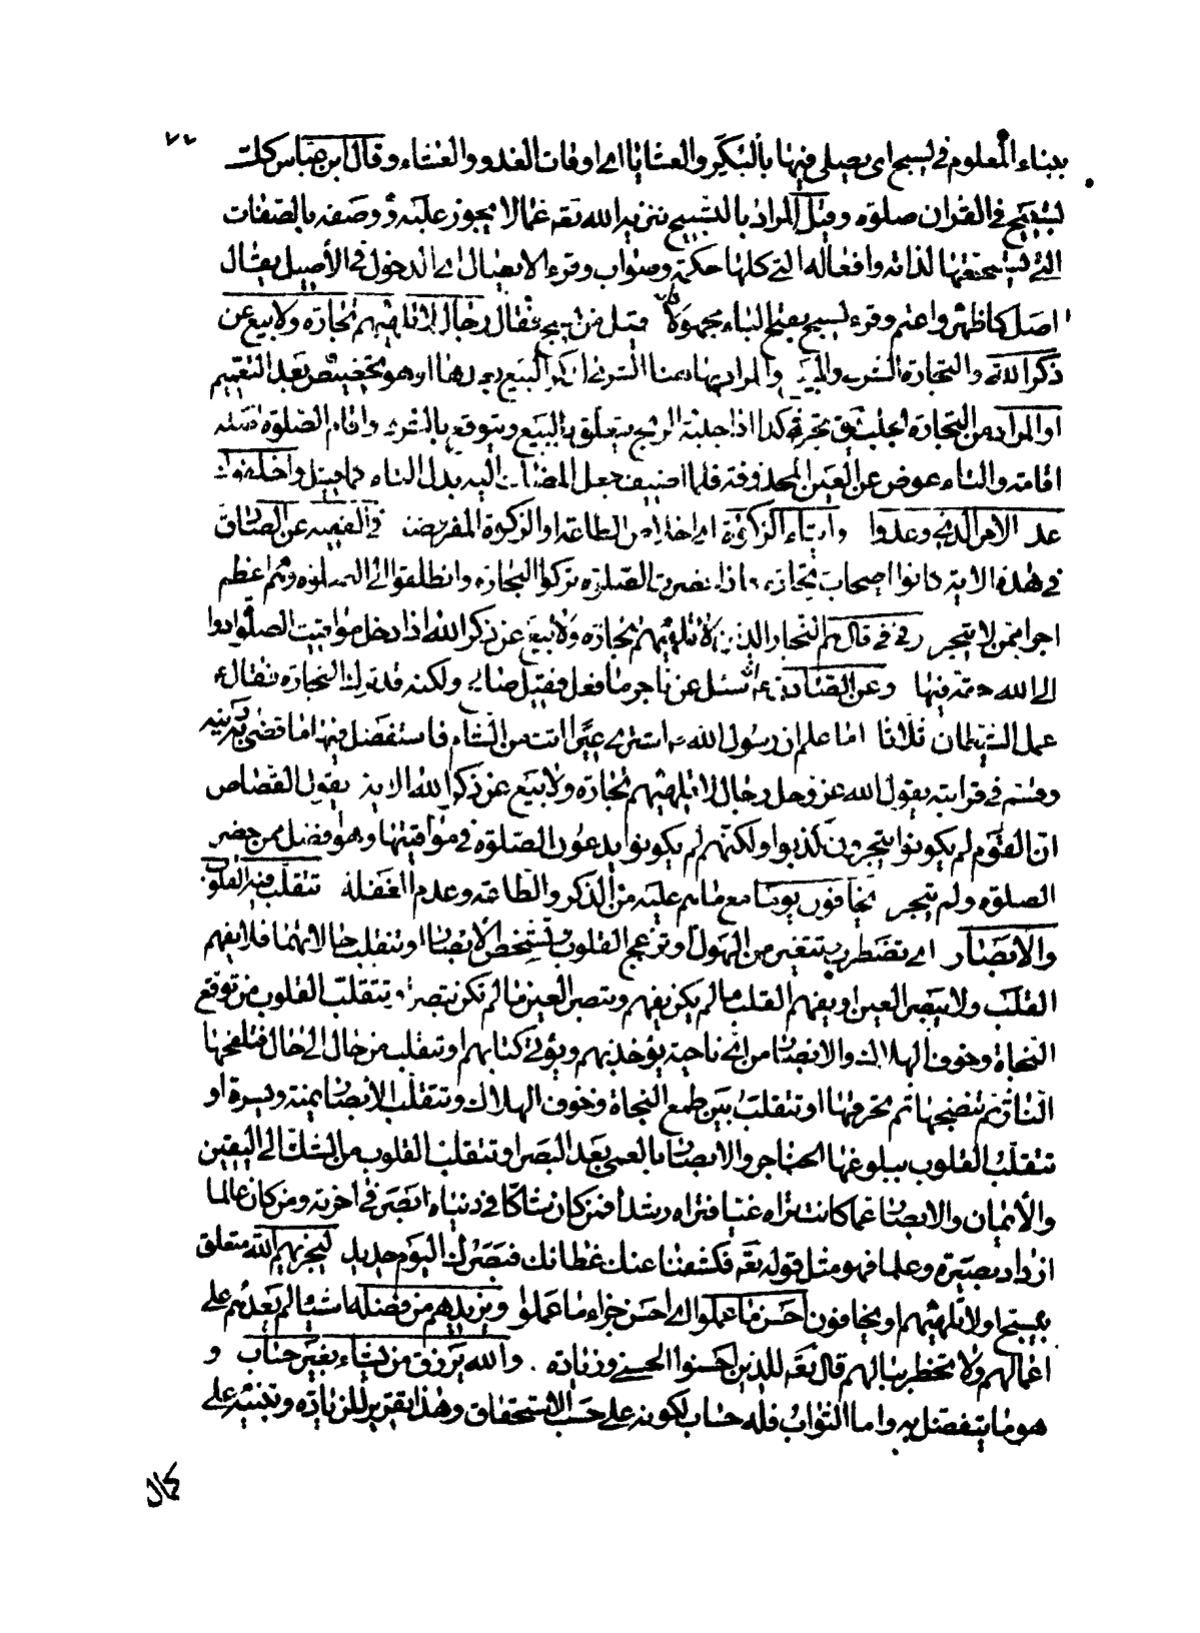 ٧٧
ببناء المعلوم في يسبح اى يصلى فيها بالبكر والعشايا اى اوقات الغدو والعشاء وقال ابن عباس كل
تسبيح في القران صلوة وقيل المراد بالتسبيح تنزيه الله تعه عما لا يجوز عليه ووصفه بالصفات
التى يستحقها لذاته وافعاله التى كلها حكمة وصواب وقرء الايصال اى الدخول في الأصيل يقال
اصل كاظهر واعتم وقرء يسبح بفتح الباء مجهولا قيل من يسبح فقال رجال لا تلهيهم تجارة ولا بيع عن
ذكر الله والتجارة الشرى والبيع والمراد بها هنا الشرى لذكر البيع بعدها او هو تخصيص بعد التعميم
او المراد من التجارة الجلب يق تجر في كذا اذا جلبه الربح يتعلق بالبيع ويتوقع بالشرى واقام الصلوة اصله
اقامة والتاء عوض عن العين المحذوفة فلما اضيف جعل المضاف اليه بدل التاء كما قيل واخلفوك
عد الامر الذى وعدوا وايتاء الزكوة اى اخلاص الطاعة او الزكوة المفروضة في الفقيه عن الصادق
في هذه الاية كانوا اصحاب تجارة فاذا حضرت الصلوة تركوا التجارة وانطلقوا الى الصلوة وهم اعظم
اجرا ممن لا يتجر في قال هم التجار الذين لا تلهيهم تجارة ولا بيع عن ذكر الله اذا دخل مواقيت الصلوة ادوا
الى الله حقه فيها وعن الصادق ع انه سئل عن تاجر ما فعل فقيل صالح ولكنه قد ترك التجارة فقال ع
عمل الشيطان ثلاثا اما علم ان رسول الله ص اشترى عيرا اتت من الشام فاستفضل فيها ما قضى دينه
وقسم في قرابته يقول الله عز وجل رجال لا تلهيهم تجارة ولا بيع عن ذكر الله الاية يقول القصاص
ان القوم لم يكونوا يتجرون كذبوا ولكنهم لم يكونوا يدعون الصلوة في مواقيتها وهو افضل ممن حضر
الصلوة ولم يتجر يخافون يوما مع ما هم عليه من الذكر والطاعة وعدم الغفلة تتقلب فيه القلوب
والابصار اى تضطرب وتتغير من الهول او تزعج القلوب وتشخص الابصار او تتقلب حالاتهما فلا يفهم
القلب ولا يبصر العين او يفهم القلب ما لم يكن يفهم ويبصر العين ما لم تكن تبصر او تتقلب القلوب من توقع
النجاة وخوف الهلاك والابصار من اى ناحية يؤخذ بهم ويؤتى كتابهم او تتقلب من حال الى حال فتلفحها
النار ثم تنضجها ثم تحرقها او تتقلب بين طمع النجاة وخوف الهلاك وتتقلب الابصار يمنة ويسرة او
تتقلب القلوب ببلوغها الحناجر والابصار بالعمى بعد البصر او تتقلب القلوب من الشك الى اليقين
والايمان والابصار عما كانت تراه غيا فتراه رشدا فمن كان شاكا في دنياه ابصر في اخرته ومن كان عالما
ازداد بصيرة وعلما فهو مثل قوله تعه فكشفنا عنك غطائك فبصرك اليوم حديد ليجزيهم الله متعلق
بيسبح او لا تلهيهم او يخافون احسن ما عملوا اى احسن جزاء ما عملوا ويزيدهم من فضله اشياء لم يعدهم على
اعمالهم ولا تخطر ببالهم قال تعه للذين احسنوا الحسنى وزيادة . والله يرزق من يشاء بغير حساب و
هو ما يتفضل به واما الثواب فله حساب لكونه على حسب الاستحقاق وهذا تقرير للزيادة وتنبيه على
كمال